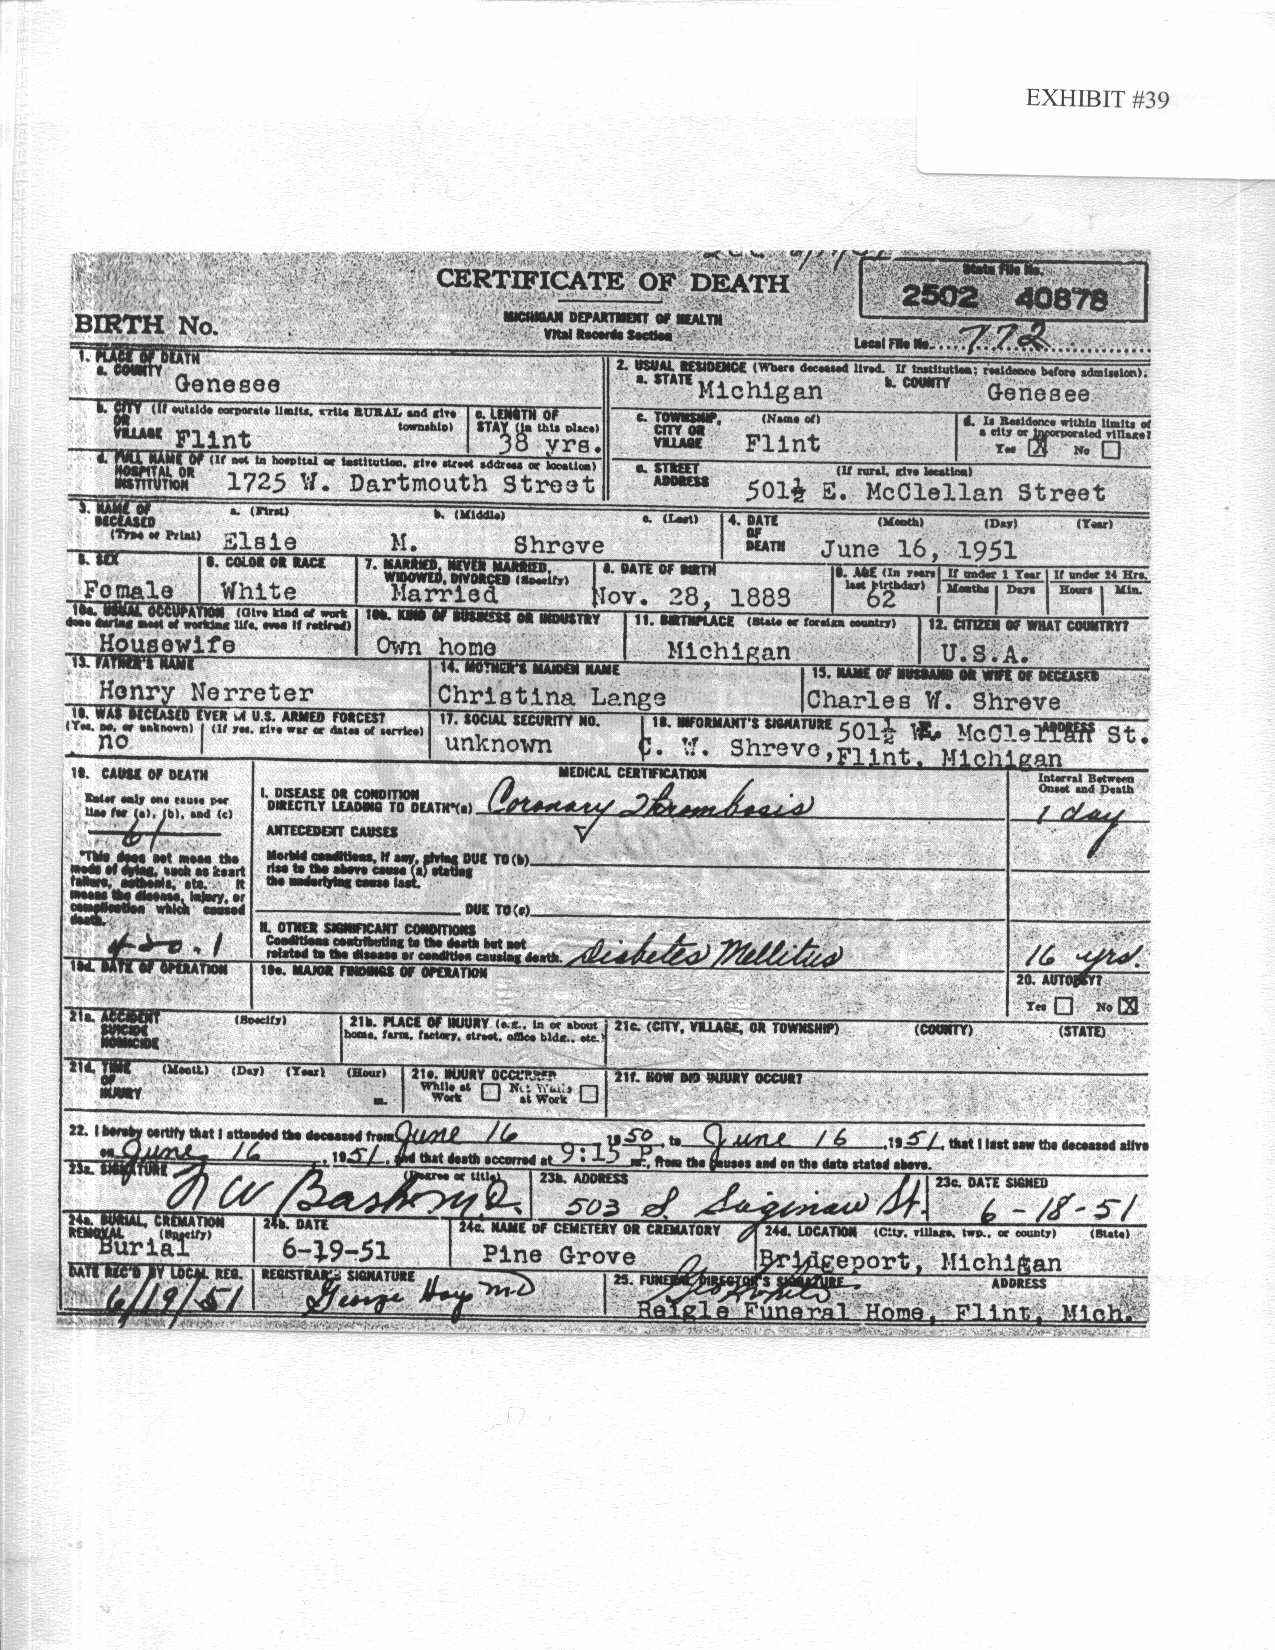 EXHIBIT #39
CERTIFICATE OF DEATH
State File No.
2502 40878
MICHIGAN DEPARTMENT OF HEALTH
Vital Records Section
BIRTH No.
Local File No. 772
1. PLACE OF DEATH
a. COUNTY
Genesee
2. USUAL RESIDENCE (Where deceased lived. If institution; residence before admission).
a. STATE Michigan b. COUNTY Genesee
b. CITY (If outside corporate limits, write RURAL and give township)
OR
VILLAGE Flint
c. LENGTH OF
STAY (in this place)
38 yrs.
c. TOWNSHIP, (Name of)
CITY OR
VILLAGE Flint
d. Is Residence within limits of
a city or incorporated village?
Yes X No
d. FULL NAME OF (If not in hospital or institution, give street address or location)
HOSPITAL OR
INSTITUTION 1725 W. Dartmouth Street
e. STREET (If rural, give location)
ADDRESS 501½ E. McClellan Street
3. NAME OF
DECEASED
(Type or Print)
a. (First) b. (Middle) c. (Last)
Elsie M. Shreve
4. DATE (Month) (Day) (Year)
OF
DEATH June 16, 1951
5. SEX
Female
6. COLOR OR RACE
White
7. MARRIED, NEVER MARRIED,
WIDOWED, DIVORCED (Specify)
Married
8. DATE OF BIRTH
Nov. 28, 1888
9. AGE (In years
last birthday)
62
If under 1 Year
Months Days
If under 24 Hrs.
Hours Min.
10a. USUAL OCCUPATION (Give kind of work
done during most of working life, even if retired)
Housewife
10b. KIND OF BUSINESS OR INDUSTRY
Own home
11. BIRTHPLACE (State or foreign country)
Michigan
12. CITIZEN OF WHAT COUNTRY?
U.S.A.
13. FATHER'S NAME
Henry Nerreter
14. MOTHER'S MAIDEN NAME
Christina Lange
15. NAME OF HUSBAND OR WIFE OF DECEASED
Charles W. Shreve
16. WAS DECEASED EVER IN U.S. ARMED FORCES?
(Yes, no, or unknown) (If yes, give war or dates of service)
no
17. SOCIAL SECURITY NO.
unknown
18. INFORMANT'S SIGNATURE ADDRESS
501½ McClellan St.
C. W. Shreve, Flint, Michigan
19. CAUSE OF DEATH
Enter only one cause per
line for (a), (b), and (c)
*This does not mean the
mode of dying, such as heart
failure, asthenia, etc. It
means the disease, injury, or
complication which caused
death.
420.1
MEDICAL CERTIFICATION
Interval Between
Onset and Death
I. DISEASE OR CONDITION
DIRECTLY LEADING TO DEATH*(a) Coronary Thrombosis
1 day
ANTECEDENT CAUSES
Morbid conditions, if any, giving DUE TO (b)
rise to the above cause (a) stating
the underlying cause last.
DUE TO (c)
II. OTHER SIGNIFICANT CONDITIONS
Conditions contributing to the death but not
related to the disease or condition causing death. Diabetes Mellitus
16 yrs.
19d. DATE OF OPERATION
19e. MAJOR FINDINGS OF OPERATION
20. AUTOPSY?
Yes No X
21a. ACCIDENT (Specify)
SUICIDE
HOMICIDE
21b. PLACE OF INJURY (e.g., in or about
home, farm, factory, street, office bldg., etc.)
21c. (CITY, VILLAGE, OR TOWNSHIP) (COUNTY) (STATE)
21d. TIME (Month) (Day) (Year) (Hour)
OF
INJURY m.
21e. INJURY OCCURRED
While at Work Not While at Work
21f. HOW DID INJURY OCCUR?
22. I hereby certify that I attended the deceased from June 16, 1950, to June 16, 1951, that I last saw the deceased alive
on June 16, 1951, and that death occurred at 9:15 P m., from the causes and on the date stated above.
23a. SIGNATURE (Degree or title)
23b. ADDRESS
503 S. Saginaw St.
23c. DATE SIGNED
6-18-51
24a. BURIAL, CREMATION
REMOVAL (Specify)
Burial
24b. DATE
6-19-51
24c. NAME OF CEMETERY OR CREMATORY
Pine Grove
24d. LOCATION (City, village, twp., or county) (State)
Bridgeport, Michigan
DATE REC'D BY LOCAL REG.
6/19/51
REGISTRAR'S SIGNATURE
George Hays MD
25. FUNERAL DIRECTOR'S SIGNATURE ADDRESS
Reigle Funeral Home, Flint, Mich.